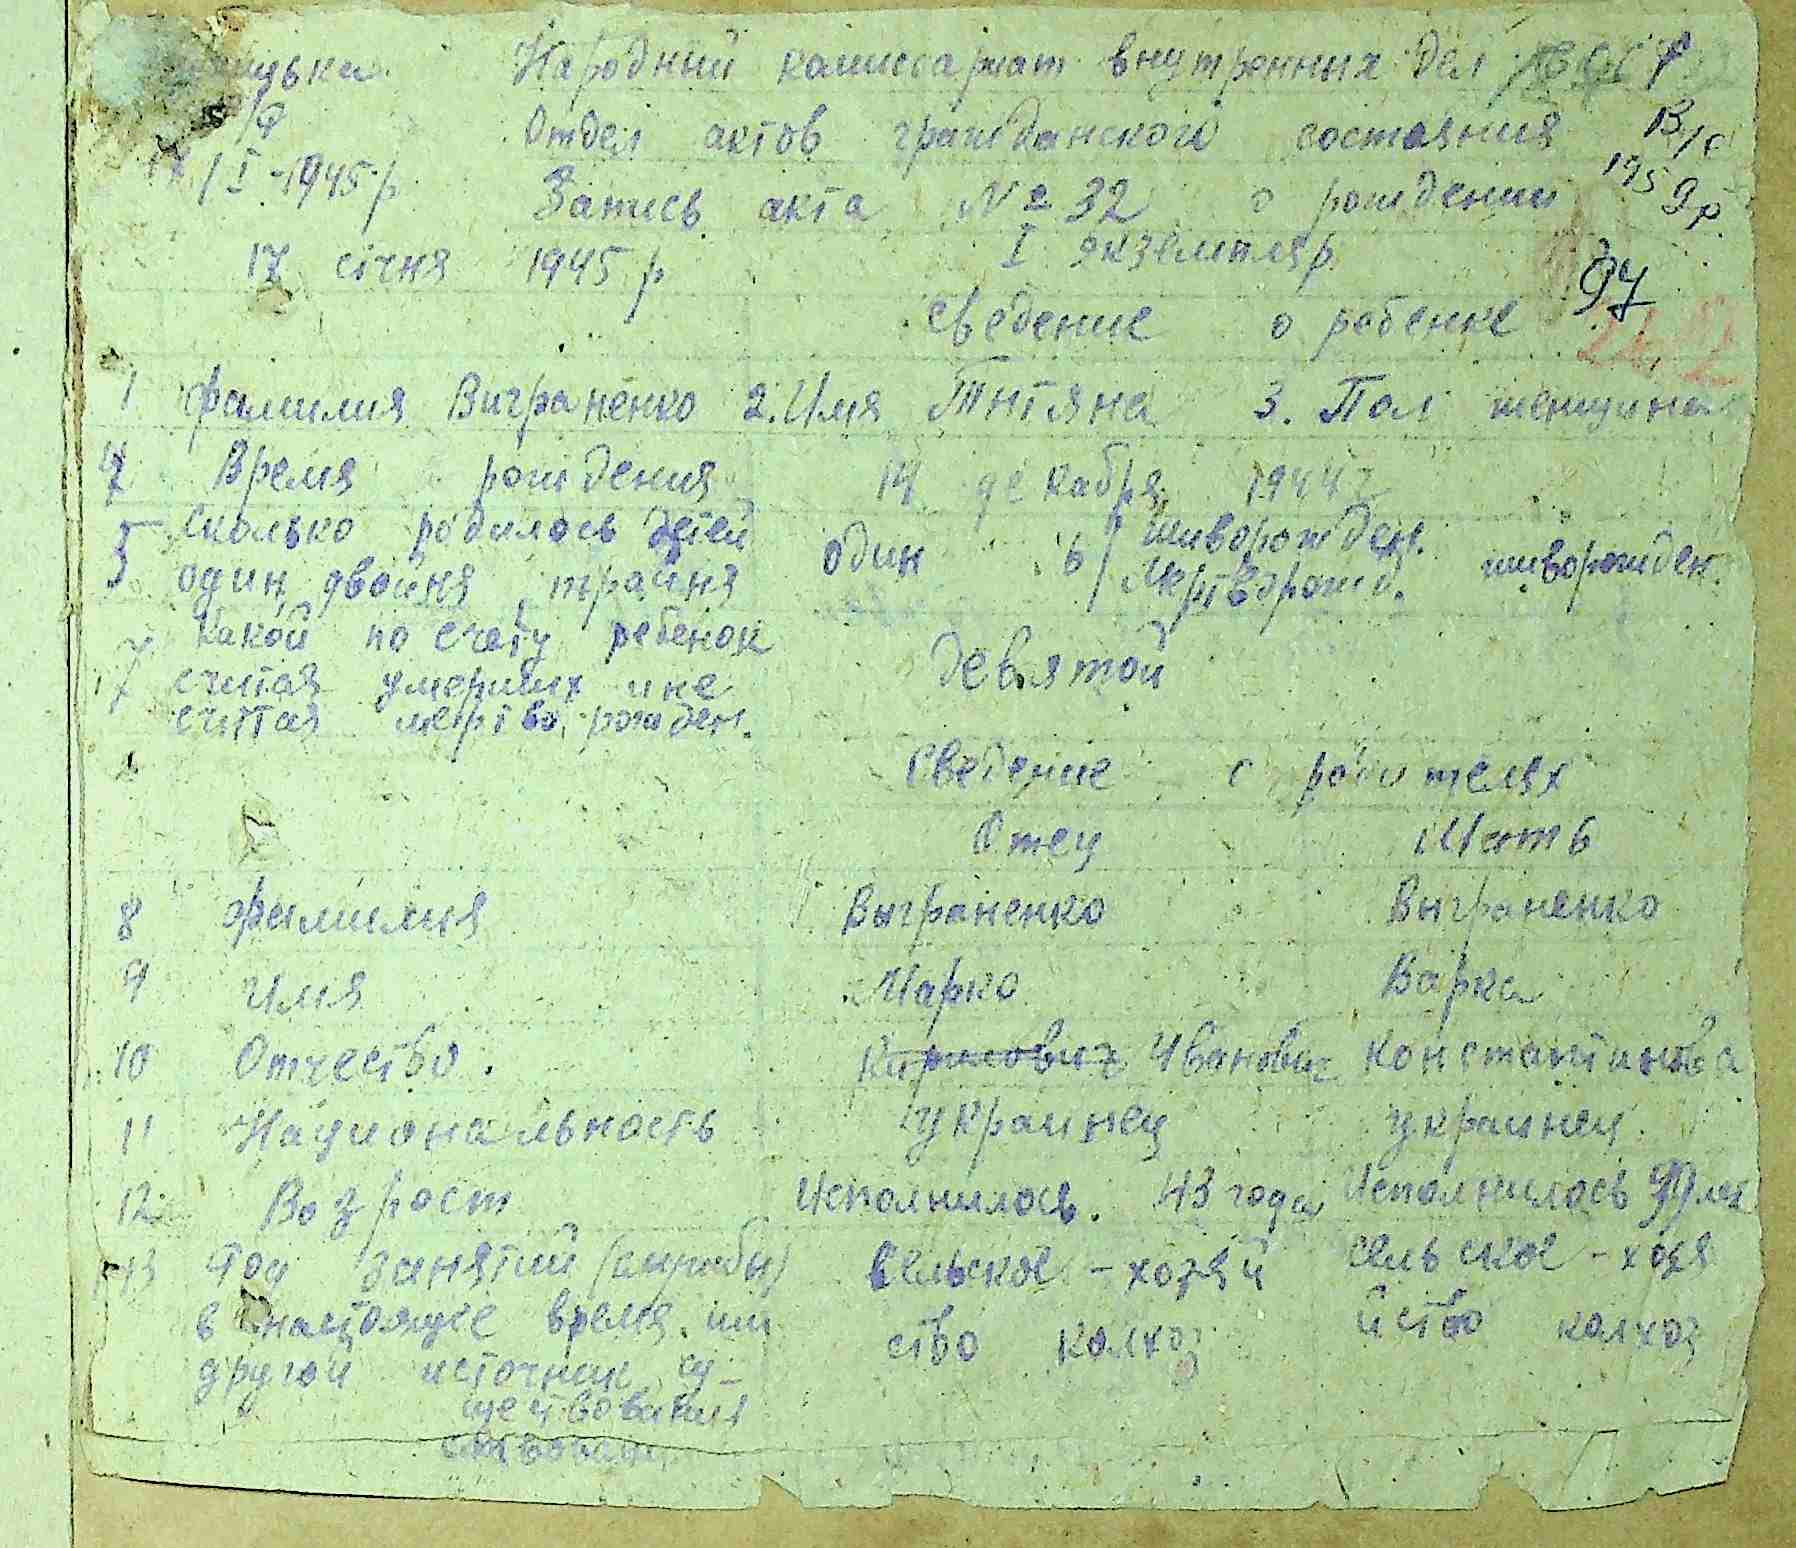 Народный комиссариат внутренных дел
Отдел актов гражданского состояния
17/I-1945 р
Запись акта №32 о рождении
17 січня 1945 р I экземпляр
97
Сведение о рабенке
1 Фамилия Виграненко 2. Имя Тнтяна 3. Пол женщина
4 Время рождения 14 декабря 1944 г
5 Сколько родилось детей один двойня тройня один 6/ живорожден. Мертворожд. живорожден.
7 Какой по счету ребенок
считая умерших и не
считая мертво рожден. девятой
Сведение о родителях
Отец Мать
8 Фамилия Выграненко Выграненко
9 Имя Марко Варка
10 Отчество. Кирилович Иванович Константиновна
11 Национальность украинец украинец
12 Возраст Исполнилось. 43 года Исполнилось лет
13 Род занятий (службы) Сельское-хозяй Сельское-хозя
в настоящее время или ство колхоз йство колхоз
другой источник су-
ществования